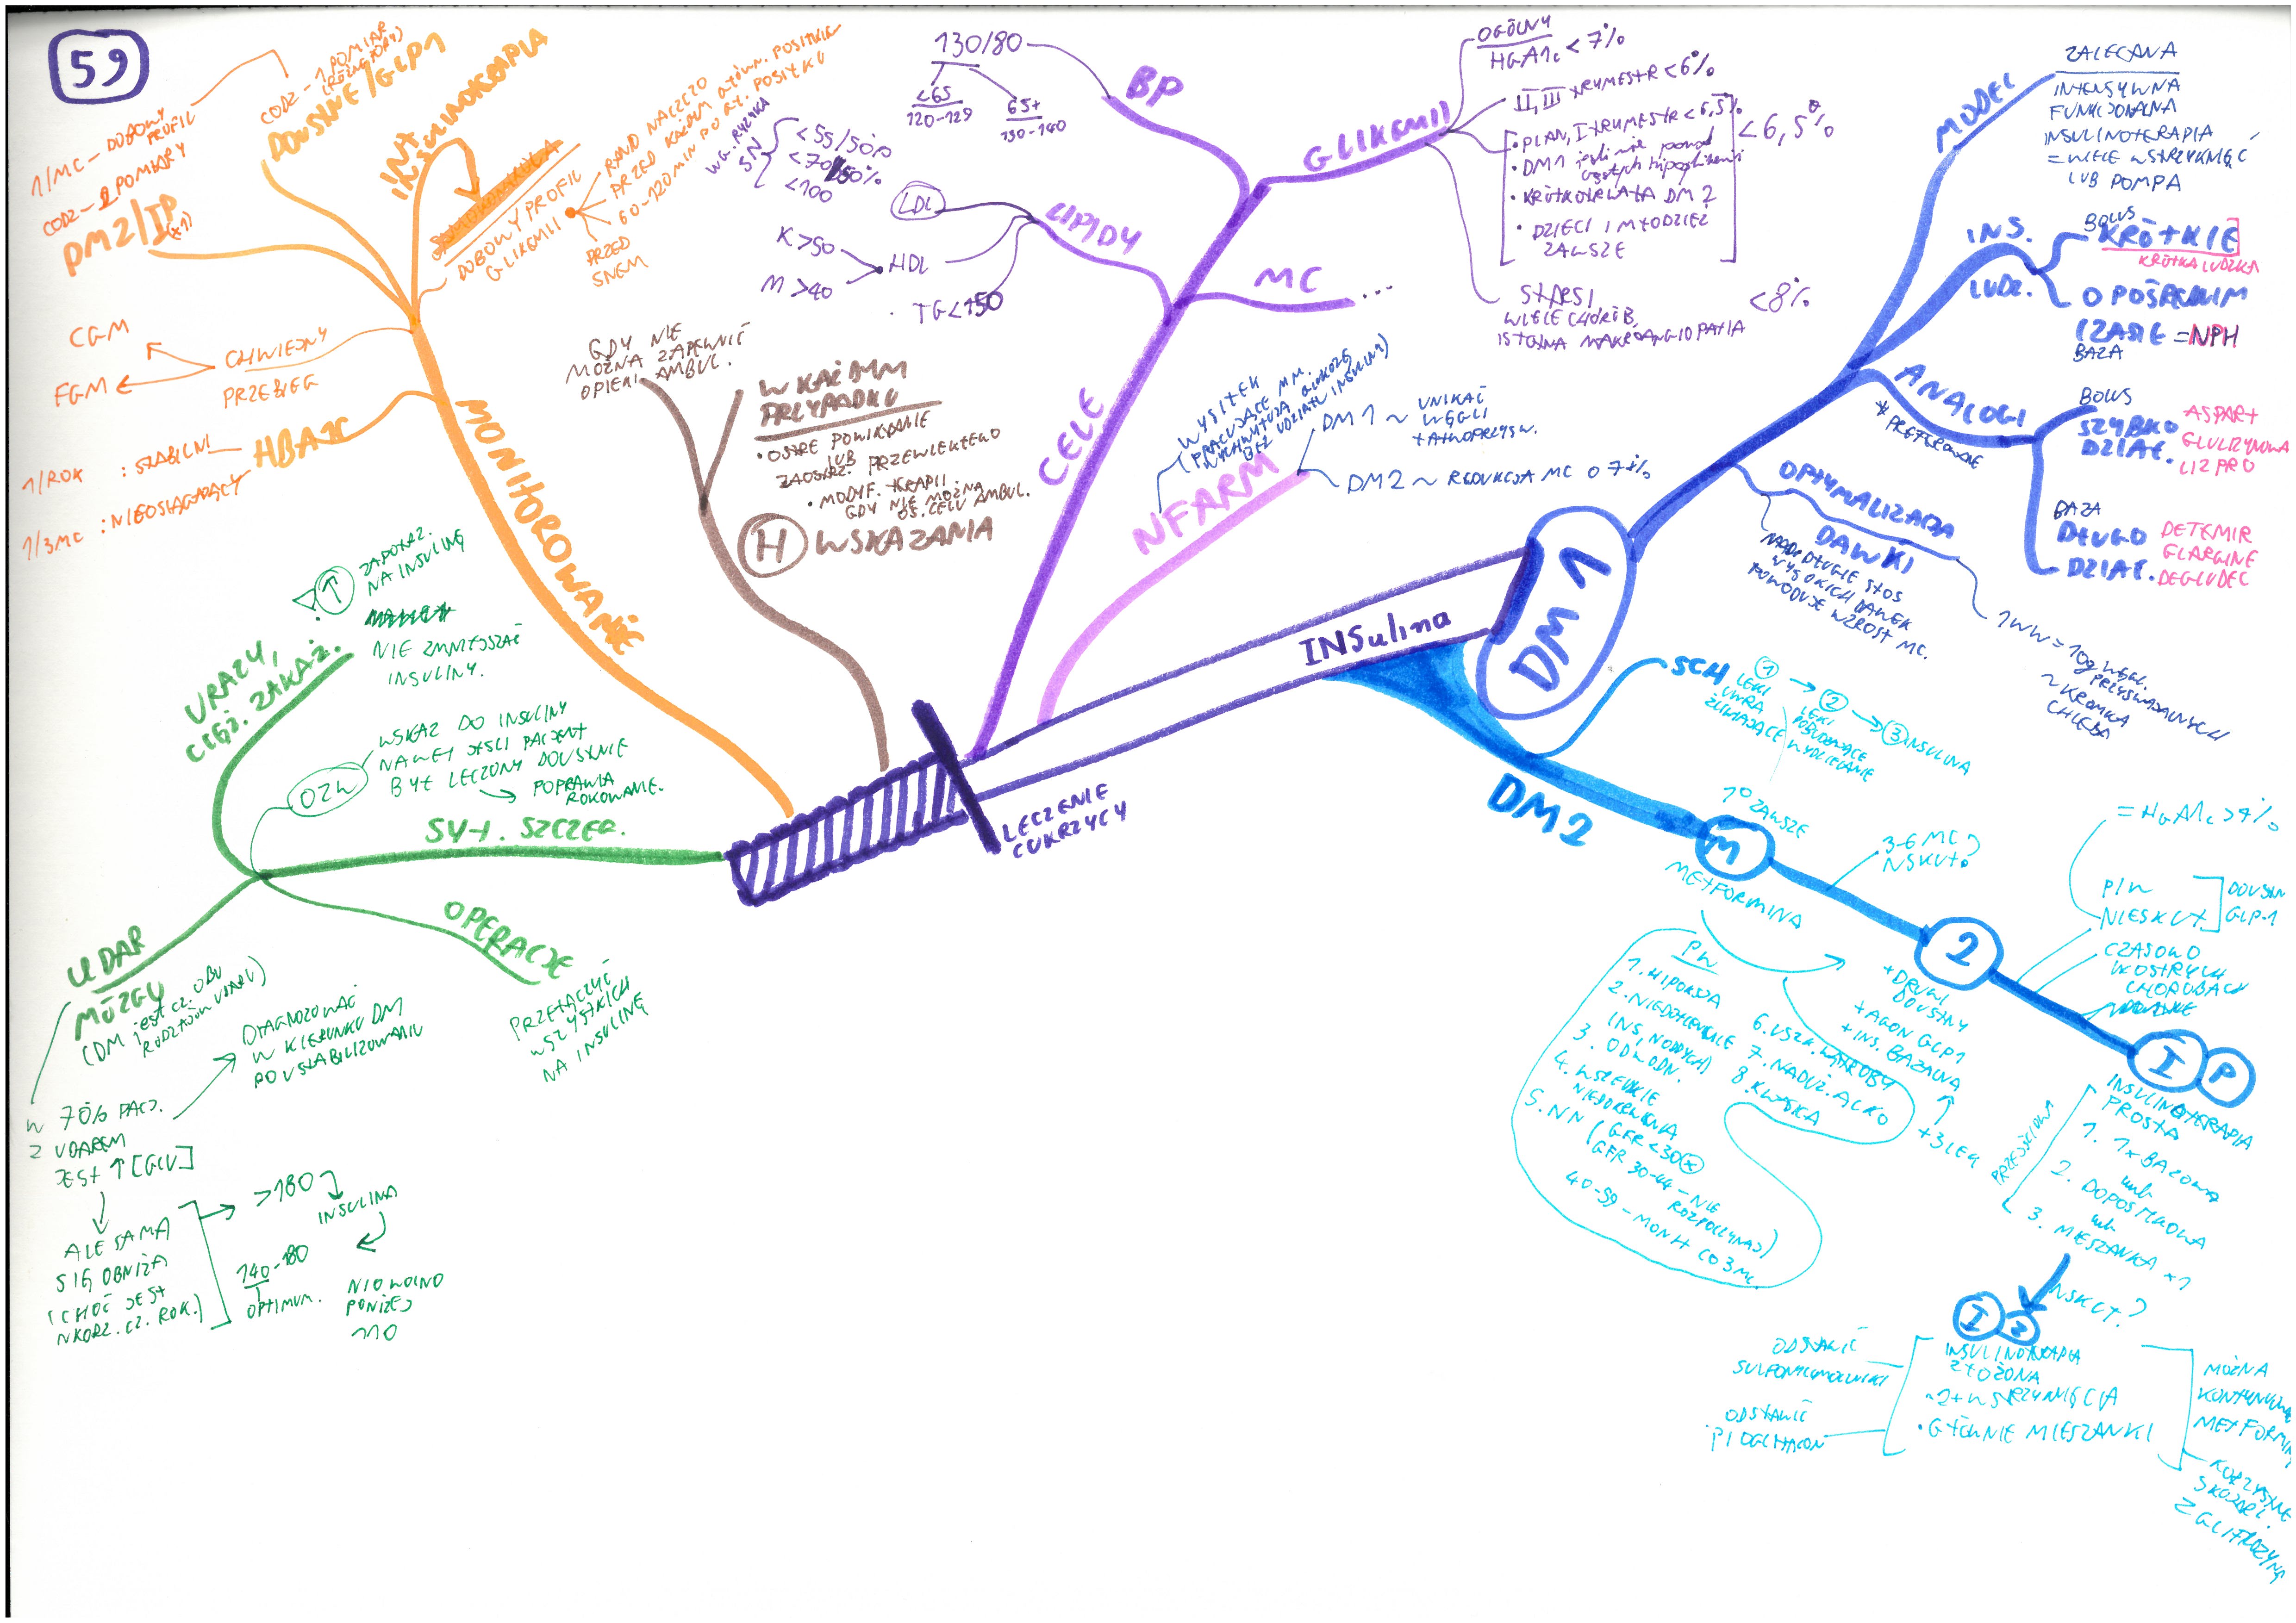 59
1/MC – DOBOWY PROFIL
CODZ – 2 POMIARY
DM2/IP
(x1)
CODZ – 1 POMIAR
(RÓŻNE PORY)
DOUSTNE/GLP1
INT.
INSULINOTERAPIA
DOBOWY PROFIL
GLIKEMII
RANO NACZCZO
PRZED KAŻDYM GŁÓWN. POSIŁKIEM
60-120 MIN PO GŁ. POSIŁKU
PRZED
SNEM
CGM
FGM
CHWIEJNY
PRZEBIEG
HBA1C
1/ROK : STABILNI
1/3MC : NIEOSIĄGAJĄCY
MONITOROWANIE
GDY NIE
MOŻNA ZAPEWNIĆ
OPIEKI AMBUL.
W KAŻDYM
PRZYPADKU
• OSTRE POWIKŁANIE
LUB
ZAOSTRZ. PRZEWLEKŁEGO
• MODYF. TERAPII
GDY NIE MOŻNA
OS. CELU AMBUL.
H WSKAZANIA
CELE
130/80
<65
120-129
65+
130-140
BP
WG. RYZYKA
SN
<55/50%
<70/50%
<100
LDL
LIPIDY
K >50
M >40
HDL
TG <150
GLIKEMII
OGÓLNY
HGA1c < 7%
II, III TRYMESTR < 6%
• PLAN, I TRYMESTR < 6,5%
• DM1 jeśli nie ponad
częstych hipoglikemii
• KRÓTKOTRWAŁA DM2
• DZIECI I MŁODZIEŻ
ZAWSZE
< 6,5%
STARSI,
WIELE CHORÓB,
ISTOTNA MAKROANGIOPATIA
<8%
MC ...
NFARM
WYSIŁEK
(PRACUJĄCE MM.
WYCHWYTUJĄ GLUKOZĘ
BEZ UDZIAŁU INSULINY)
DM1 ~ UNIKAĆ
WĘGLI
ŁATWOPRZYSW.
DM2 ~ REDUKCJA MC O 7%
INSulina
LECZENIE
CUKRZYCY
DM 1
MODEL
ZALECANA
INTENSYWNA
FUNKCJONALNA
INSULINOTERAPIA
= WIELE WSTRZYKNIĘĆ
LUB POMPA
INS.
LUDZ.
BOLUS
KRÓTKIE
KRÓTKA LUDZKA
O POŚREDNIM
CZASIE = NPH
BAZA
ANALOGI
* PREFEROWANE
BOLUS
SZYBKO
DZIAŁ.
ASPART
GLULIZYNOWA
LIZPRO
BAZA
DŁUGO
DZIAŁ.
DETEMIR
GLARGINE
DEGLUDEC
OPTYMALIZACJA
DAWKI
NADTO DŁUGIE STOS
WYSOKICH DAWEK
POWODUJE WZROST MC.
1WW = 10g węgl.
PRZYSWAJALNYCH
~ KROMKA
CHLEBA
DM2
SCH
1 → 2 → 3 INSULINA
LEKI
UWRA
ŻLIWIAJĄCE
LEKI
POBUDZAJĄCE
WYDZIELANIE
1° ZAWSZE
M
METFORMINA
3-6 MC?
NSKUT.
PW
1. HIPOKSJA
2. NIEDOTLENIENIE
INS. N ODDYCH)
3. ODWODN.
4. WSZELKIE
NIEDOKRWIENIA
5. NN (GFR <30 x
GFR 30-44 – NIE
ROZPOCZYNAJ)
40-59 – MONIT CO 3 MC.
6. USZK. WĄTROBY
7. NADUŻ. ALKO
8. KWASICA
+ DRUGI
DOUSTNY
+ AGON GLP1
+ INS. BAZALNA
+ 3 LEQ
2
= HGA1c >7%
PIW
NIESKUT.
DOUSTN
GLP-1
CZASOWO
W OSTRYCH
CHOROBACH
I P
PRZEJŚCIOWA
INSULINOTERAPIA
PROSTA
1. 1x BAZOWA
lub
2. DOPOSIŁKOWA
lub
3. MIESZANKA x1
NSKUT.?
I Z
INSULINOTERAPIA
ZŁOŻONA
• 2+ WSTRZYKNIĘCIA
• GŁÓWNIE MIESZANKI
ODSTAWIĆ
SULFONYLOMOCZNIKI
ODSTAWIĆ
MOŻNA
KONTYNUOW
METFORMIN
KORZYSTNE
SKOJARZ.
Z GLIFLOZYNĄ
SYT. SZCZEG.
URAZY,
CIĘŻ. ZAKAŻ.
↑ ZAPOTRZ.
NA INSULINĘ
NIE ZMNIEJSZAĆ
INSULINY.
OZW
WSKAZ DO INSULINY
NAWET JEŚLI PACJENT
BYŁ LECZONY DOUSTNIE
→ POPRAWIA
ROKOWANIE.
OPERACJE
PRZEŁĄCZYĆ
WSZYSTKICH
NA INSULINĘ
UDAR
MÓZGU
(DM jest cz. OBU
RODZAJÓW UDARU)
DIAGNOZOWAĆ
W KIERUNKU DM
PO USTABILIZOWANIU
W 70% PACJ.
Z UDAREM
JEST ↑ [GLU]
ALE SAMA
SIĘ OBNIŻA
(CHOĆ JEST
NKORZ. CZ. ROK.)
>180
INSULINA
140-180
OPTIMUM.
NIE WOLNO
PONIŻEJ
110